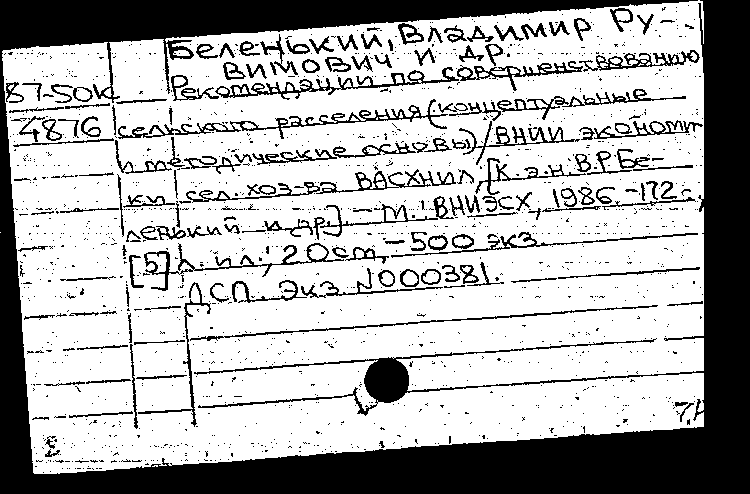 Беленький, Владимир Ру-
вимович и др.
87-50К Рекомендации по совершенствованию
4876 сельского расселения (концептуальные
и методические основы) / ВНИИ экономи
ки сел. хоз-ва ВАСХНИЛ, [К.э.н. В.Р. Бе-
ленький и др.] - М.: ВНИЭСХ, 1986. -172 с.,
[5] л. ил.; 20 см, - 500 экз.
ДСП. Экз. N000381.